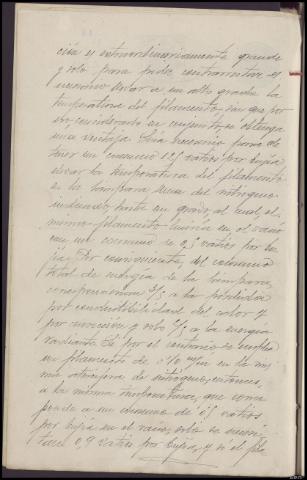 ción es extraordinariamente grande
y solo para poder contrarrestar es
necesario elevar a un alto grado la
temperatura del filamento, sin que por
eso considerado en conjunto, se obtenga
una ventaja. Sería necesario para ob-
tener un consumo vatios por bujía
elevar la temperatura del filamento
en la lámpara llena del nitrógeno
indicado hasta un grado, al cual, el
mismo filamento luciría en el vacío
con un consumo de 0,5 vatios por bu-
jía. Por consiguiente, del consumo
total de energía de la lámpara,
corresponderían 3/5 a la pérdida
por conductibilidad del calor y
por convección y solo 2/5 a la energía
radiante. Si por el contrario se emplea
un filamento de m/m en la mis-
ma atmósfera de nitrógeno, entonces,
a la misma temperatura, que corres-
ponde a un consumo de 0,5 vatios
por bujía en el vacío, solo se necesi-
tará 0,9 vatios por bujía, y si el fila-